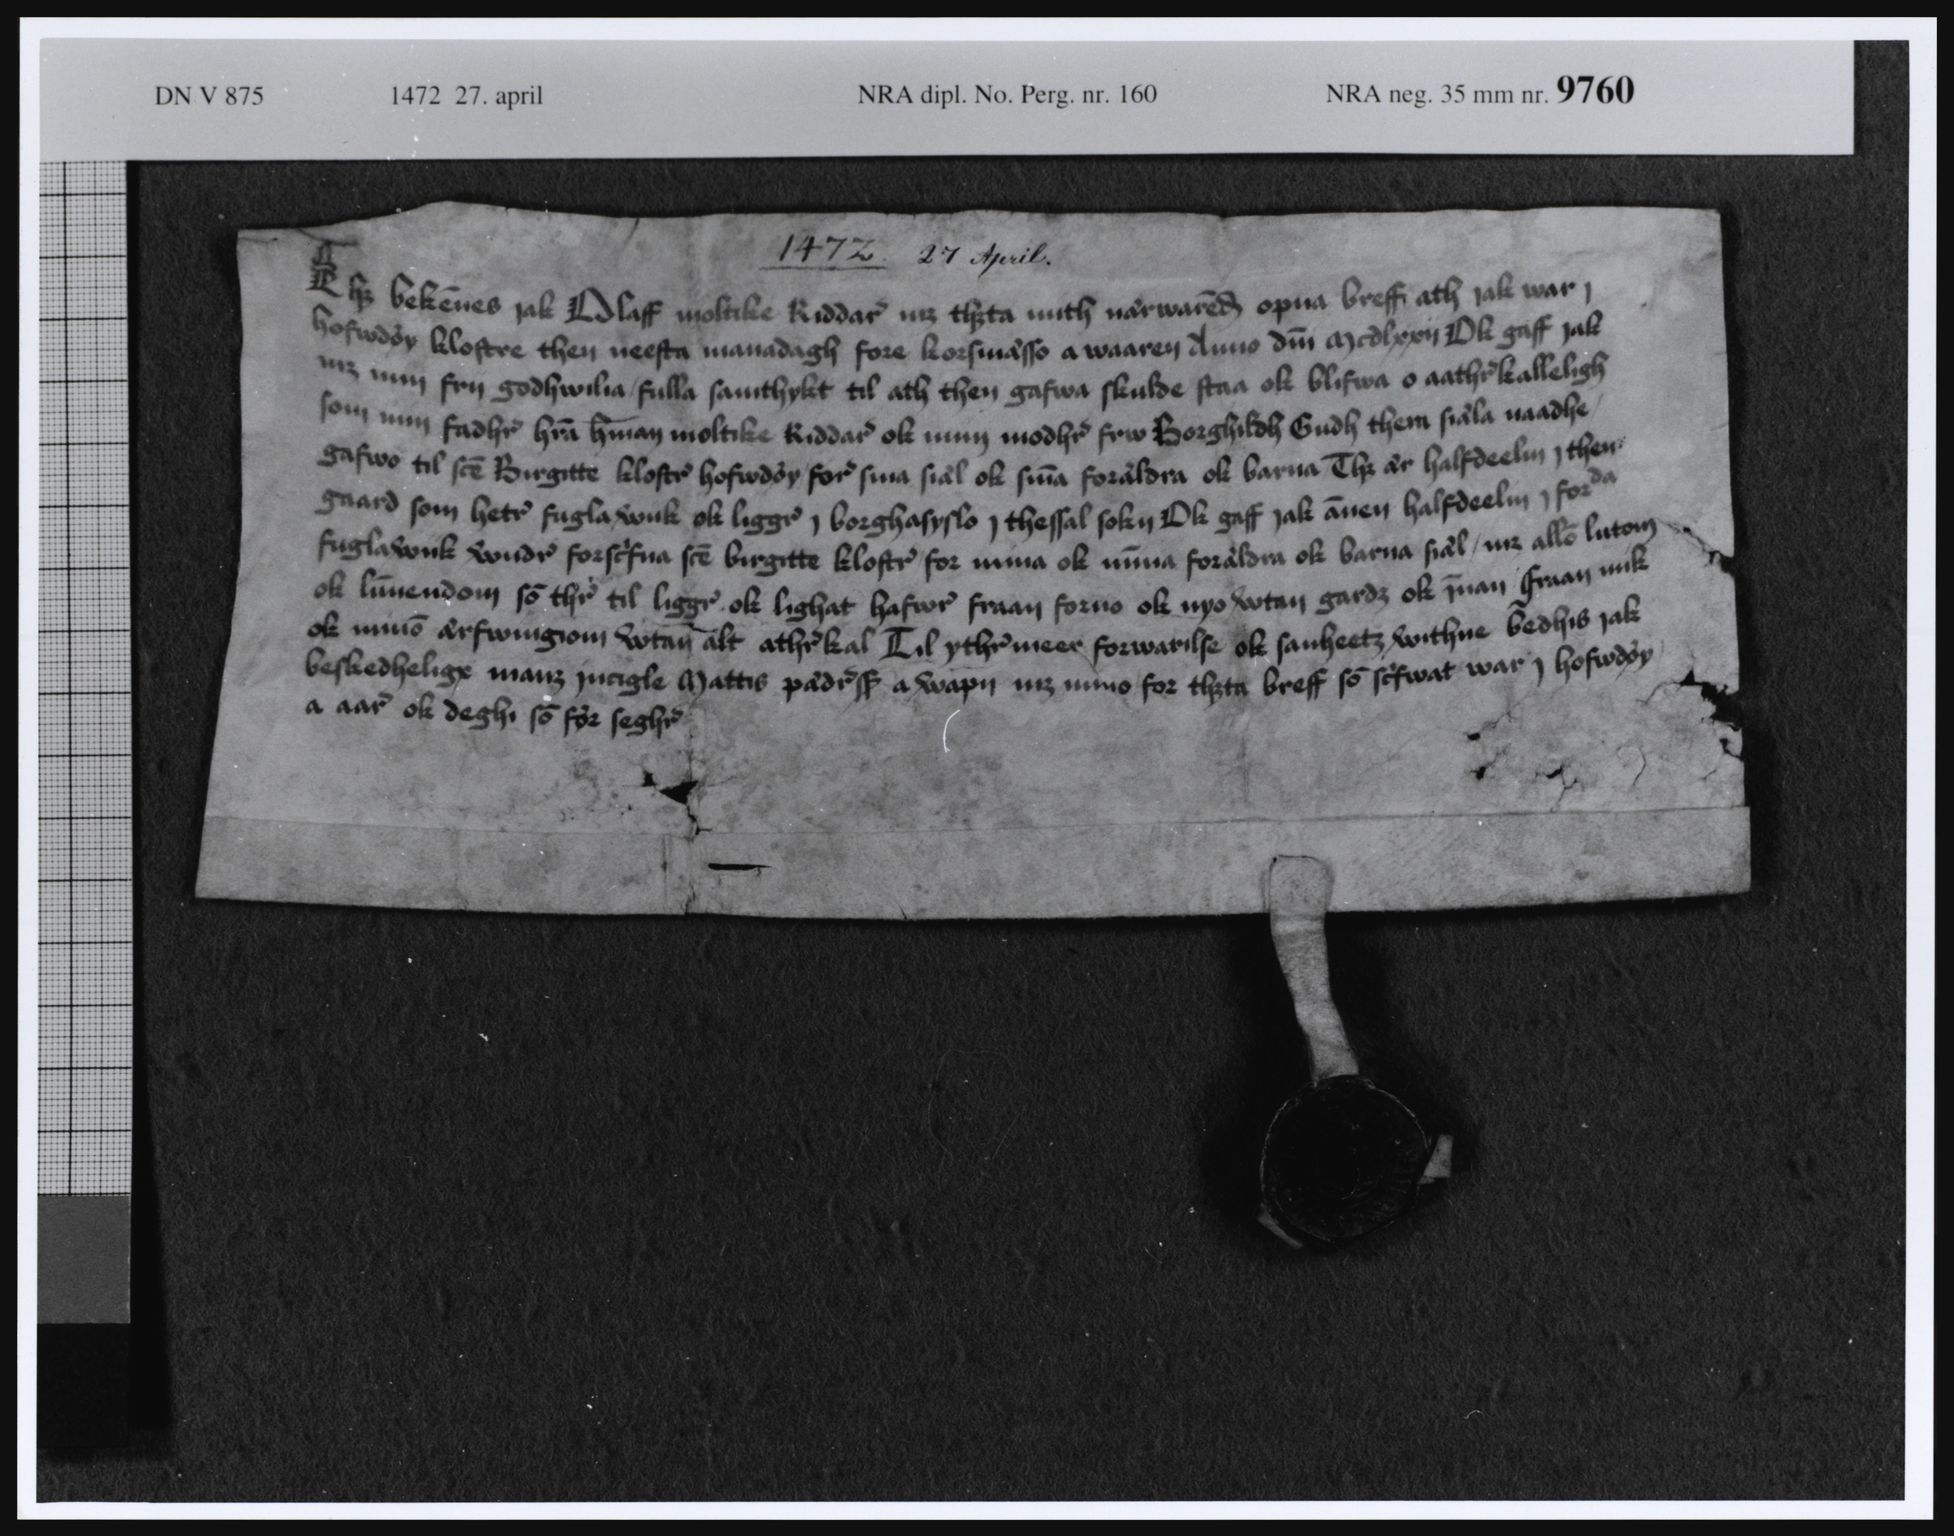 DN V 875 1472 27. april NRA dipl. No. Perg. nr. 160 NRA neg. 35 mm nr. 9760
1472. 27 April.
Thꝫ bekēnes jak Olaff moltike Riddarꝰ mꝫ thꝫta mith nårwarēd opna breff ath jak war j
hofwdøy klostre then neesta manadagh fore korsmåsso a waaren Anno dn̄i Mcdlxxij Ok gaff jak
mꝫ min frij godhwilia / fulla samthykt til ath then gafwa skulde staa ok blifwa o aathrꝰkalleligh
som min fadhrꝰ hrā hn̄man moltike Riddarꝰ ok min modhrꝰ frw Borghildh Gudh thera siåla naadhe /
gafwo til scē Birgitte klostrꝰ hofwdøy / forꝰ sina siål ok sin̄a foråldra ok barna Thꝫ år halfdeelin j then
gaard som hetrꝰ fuglawiik ok liggrꝰ j borghasyslo j thessal sokn Ok gaff jak ān̄en halfdeelin j forda
fuglawiik wndrꝰ forscꝰfna scē birgitte klostrꝰ for mina ok mīna foråldra ok barna siål / mꝫ allō lutom
ok lūnendom sō thrꝰ til liggrꝰ ok lighat hafwrꝰ fraan forno ok nyo wtan gardꝫ ok īnan ffraan mik
ok minō årfwingiom wtan alt athrꝰkal Til ythrꝰmeer forwarilse ok sanheetꝫ withne bēdhis jak
beskedheligx manꝫ jncigle Mattis pådrꝰss a wapn mꝫ mino for thꝫta breff sō scꝰfwat war j hofwdøy
a aarꝰ ok deghi sō før seghrꝰ